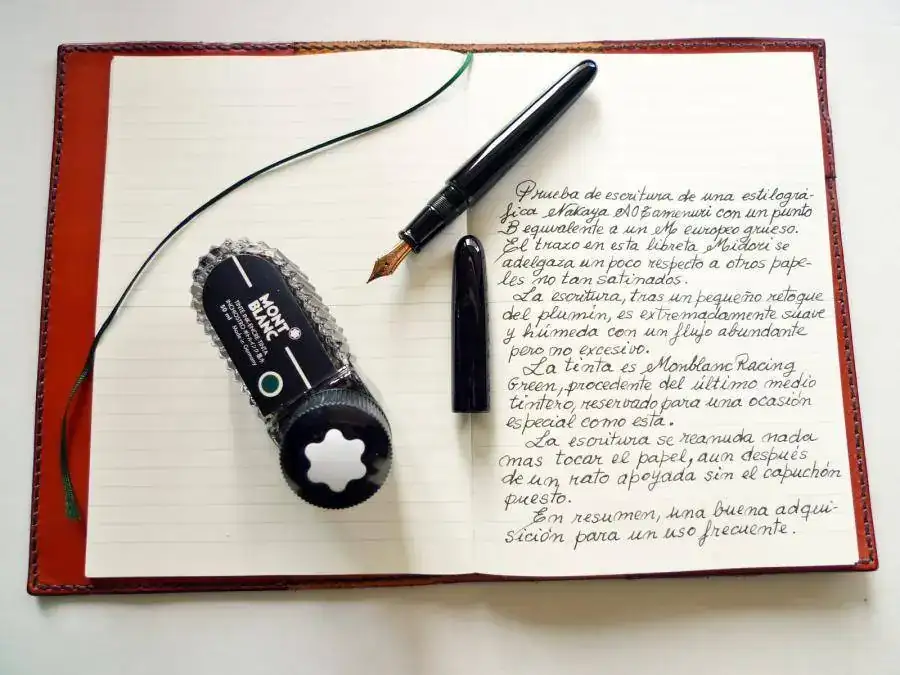 MONT
BLANC
TINTE INK ENCRE TINTA
INCHIOSTRO ボトルインク 墨水
50 ml
Made in Germany
Prueba de escritura de una estilográ-
fica Nakaya AO Tamenuri con un punto
B equivalente a un M europeo grueso.
El trazo en esta libreta Midori se
adelgaza un poco respecto a otros pape-
les no tan satinados.
La escritura, tras un pequeño retoque
del plumín, es extremadamente suave
y húmeda con un flujo abundante
pero no excesivo.
La tinta es Monblanc Racing
Green, procedente del último medio
tintero, reservado para una ocasión
especial como esta.
La escritura se reanuda nada
mas tocar el papel, aun después
de un rato apoyada sin el capuchón
puesto.
En resumen, una buena adqui-
sición para un uso frecuente.